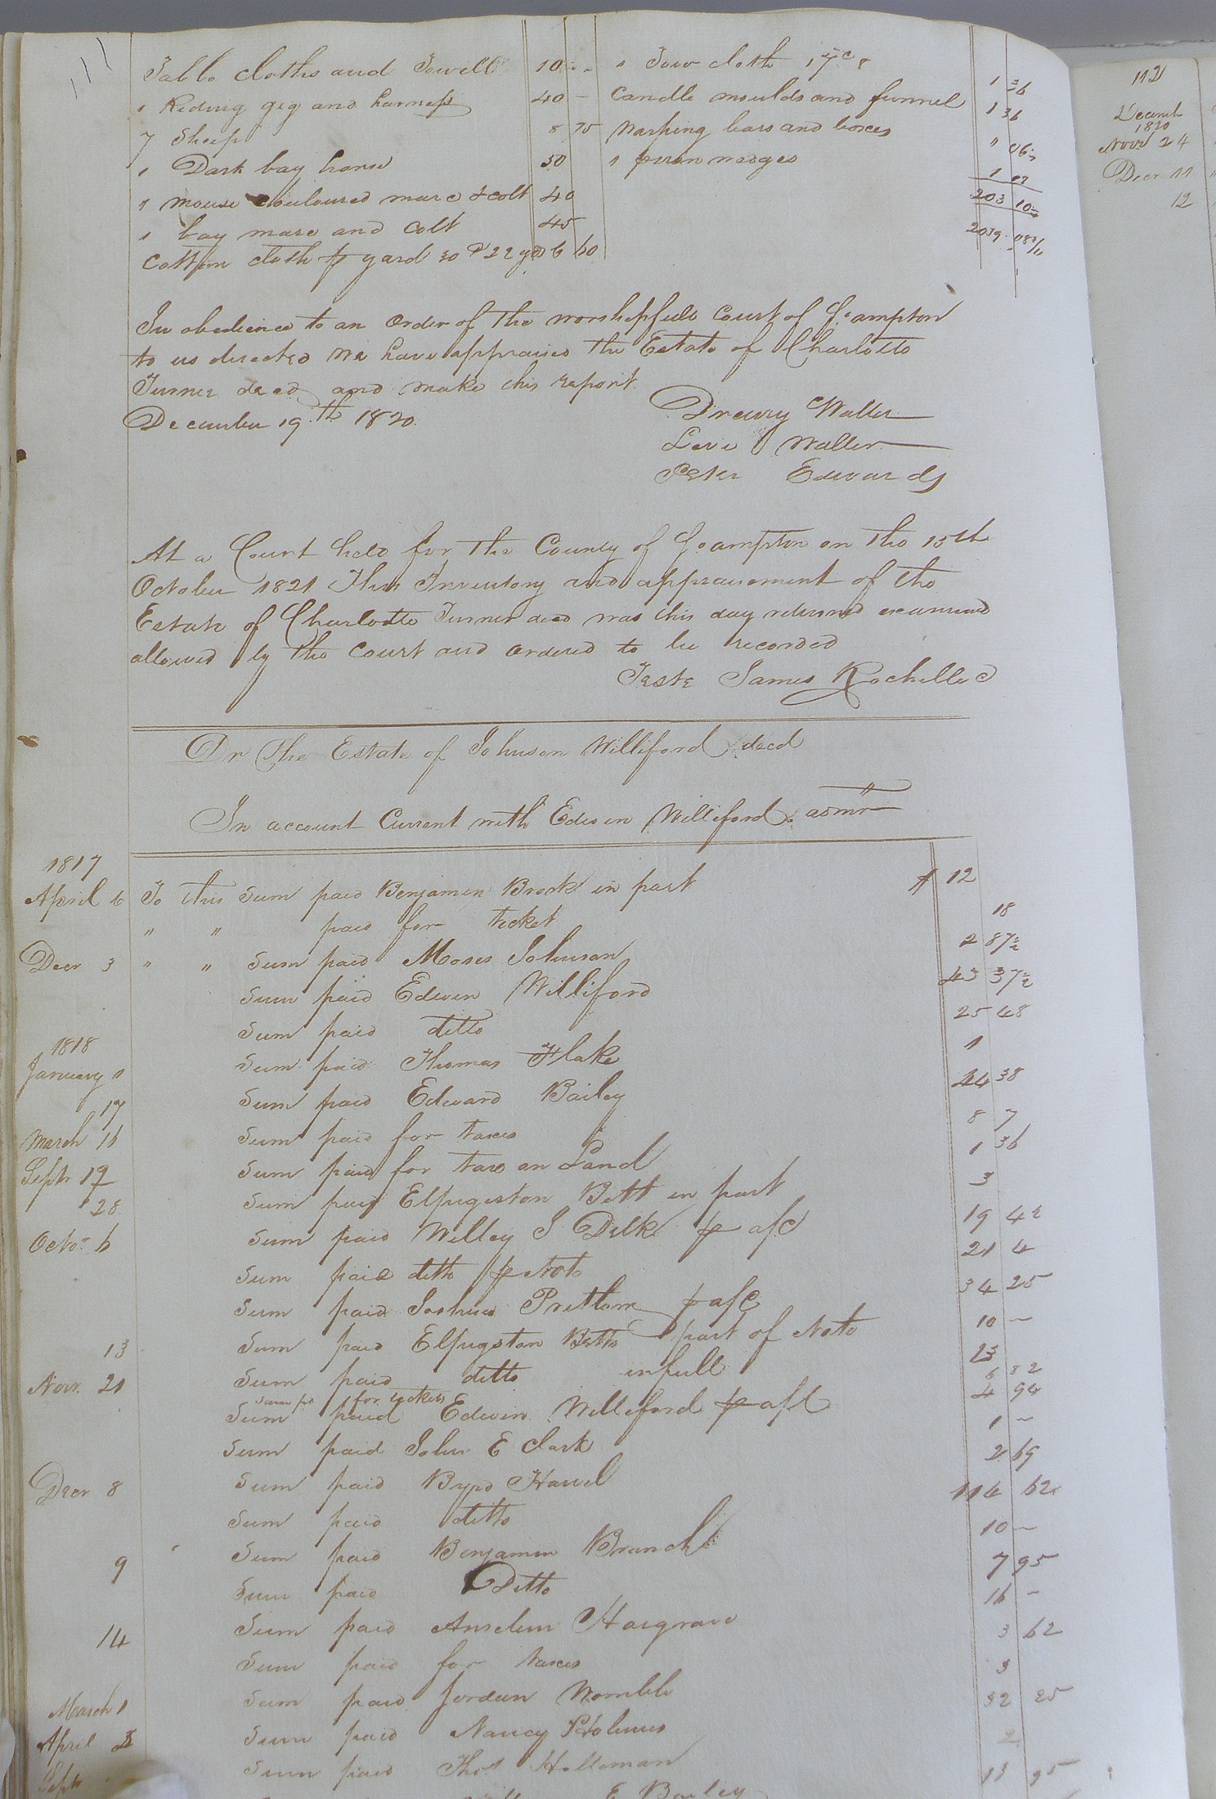 111
Table cloths and Towells 10 - -
1 Riding gig and harness 40 -
7 Sheep 8 75
1 Dark bay horse 50
1 mouse couloured mare & colt 40
1 bay mare and colt 45
Cotton cloth yard 30 22 yd 6 60
1 Tow cloth 17
Candle moulds and funnel 1 36
Warping bars and boxes " 06
1 wedges 1
203 10
2039
In obedience to an order of the worshipfull Court of So:ampton
to us directed we have appraised the Estate of Charlotte
Turner decd and make this report
December 19th 1820
Drewry Waller
Levi Waller
Peter Edwards
At a Court held for the County of So:ampton on the 15th
October 1821 This Inventory and appraisement of the
Estate of Charlotte Turner decd was this day returned examined
allowed by the Court and ordered to be recorded
Teste James Rochelle C
Dr The Estate of Johnson Williford decd
In account Current with Edwin Williford admr
1817
April 6 To this Sum paid Benjamin Brock in part $ 12
" " paid for ticket 18
Decr 3 " " Sum paid Moses Johnson 2 87½
Sum paid Edwin Williford 43 37½
Sum paid ditto 25 48
1818
January 1 Sum paid Thomas Flake 1
17 Sum paid Edward Bailey 24 38
March 16 Sum paid for taxes 8 7
Septr 17 Sum paid for taxe on Land 1 36
28 Sum paid Elpigston Bett in part 3
Octor 6 Sum paid Willey J Delk a/c 19 42
Sum paid ditto Note 21 4
Sum paid Joshua Pretlow a/c 34 25
13 Sum paid Elpigston Betts part of Note 10 -
Novr 21 Sum paid ditto in full 23
Sum pd for tickets 82
Sum paid Edwin Williford a/c 4 94
Sum paid John E Clark 1 -
Decr 8 Sum paid Byrd Harrel 2 69
Sum paid ditto 114 62
9 Sum paid Benjamin Branch 10 -
Sum paid Ditto 7 95
14 Sum paid Anselm Hargrave 16 -
Sum paid for taxes 3 62
March 1 Sum paid Jordan Womble 3
April Sum paid Nancy Holmes 32 25
Septr Sum paid Thos Holleman 2
E Bailey 13 95
112
Decemb
1820
Novr 24
Decr 11
12